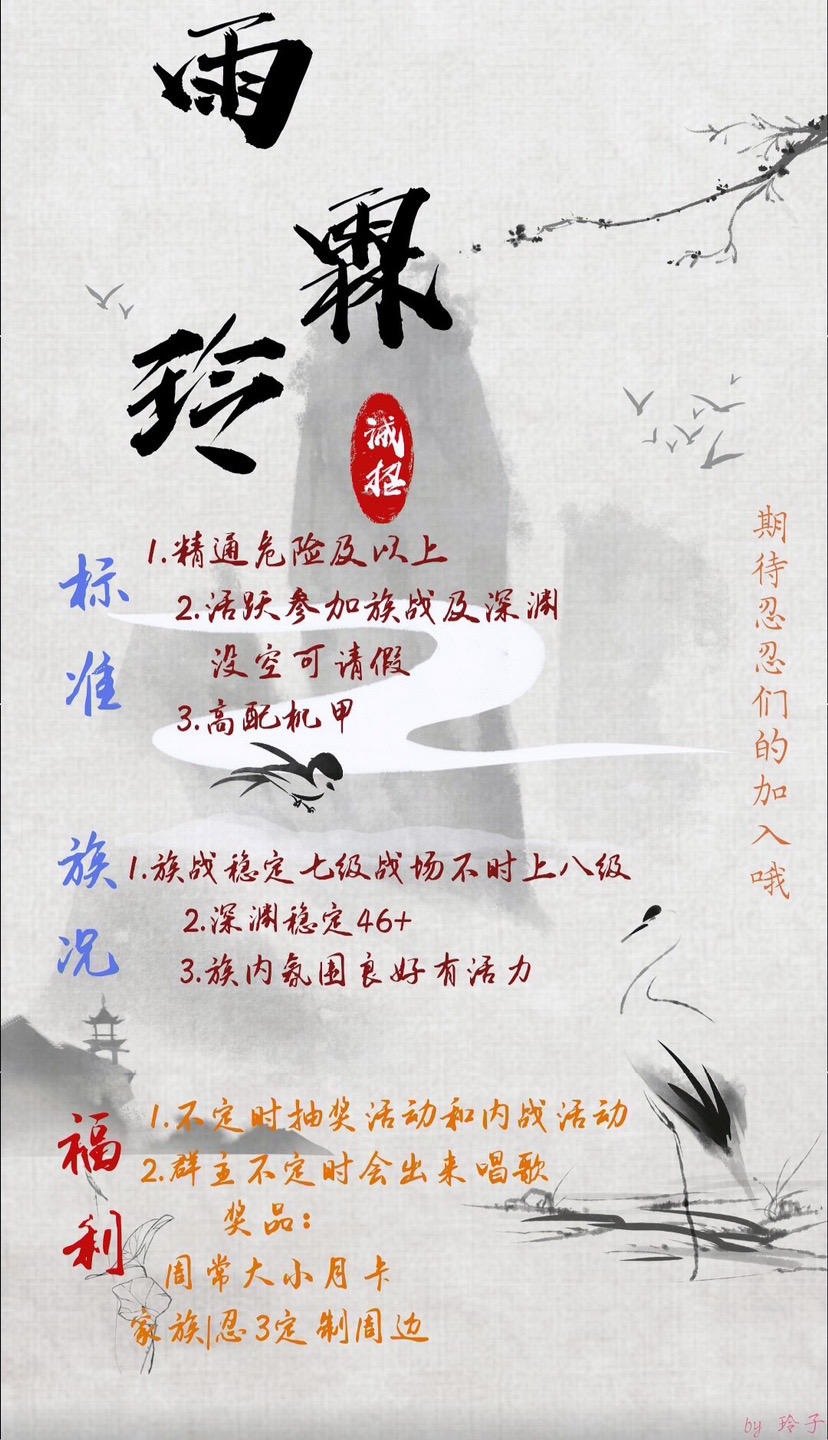 雨
霖
玲
诚招
标准
1.精通危险及以上
2.活跃参加族战及深渊
没空可请假
3.高配机甲
期待忍忍们的加入哦
族况
1.族战稳定七级战场不时上八级
2.深渊稳定46+
3.族内氛围良好有活力
福利
1.不定时抽奖活动和内战活动
2.群主不定时会出来唱歌
奖品：
周常大小月卡
家族|忍3定制周边
by 玲子